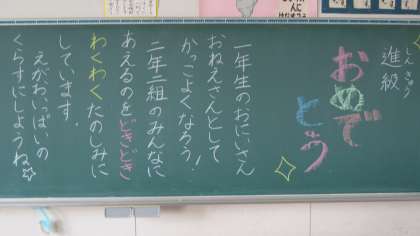 進級
おめでとう
一年生のおにいさん
おねえさんとして
かっこよくなろう！
二年二組のみんなに
あえるのをどきどき
わくわくたのしみに
しています。
えがおいっぱいの
くらすにしようね☆